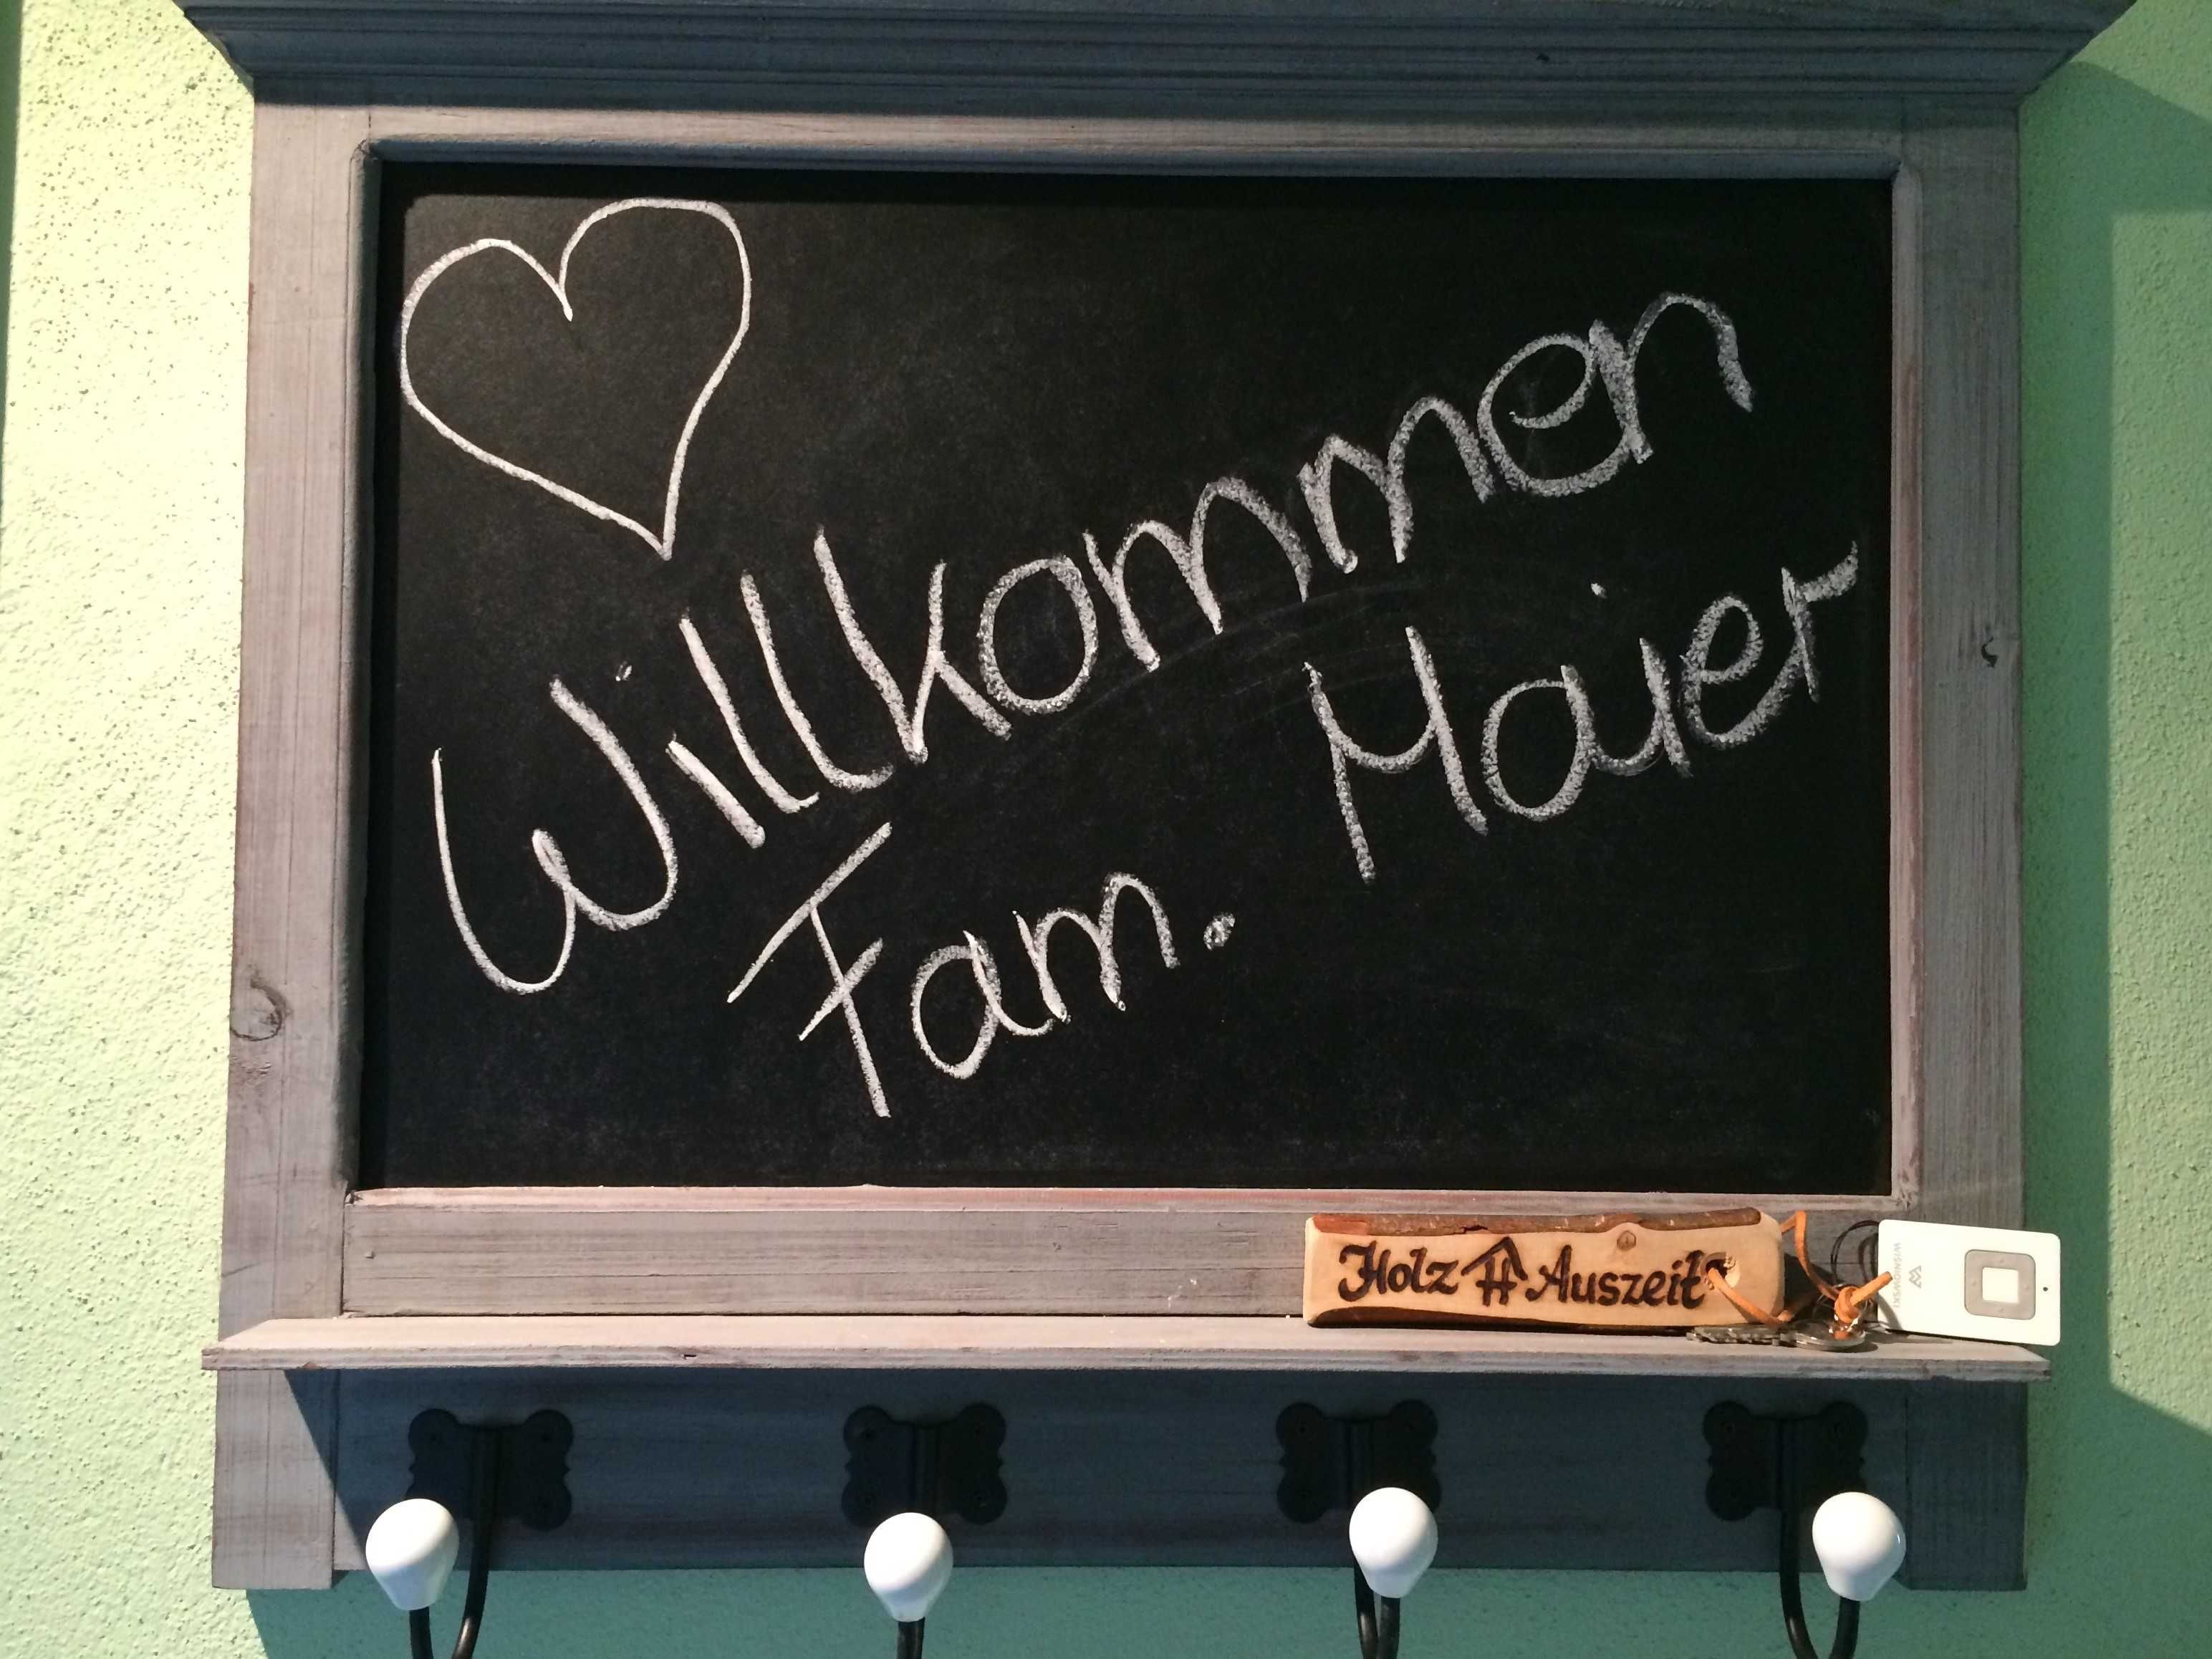 Willkommen
Fam. Maier
Holz Auszeit
WISNIOWSKI